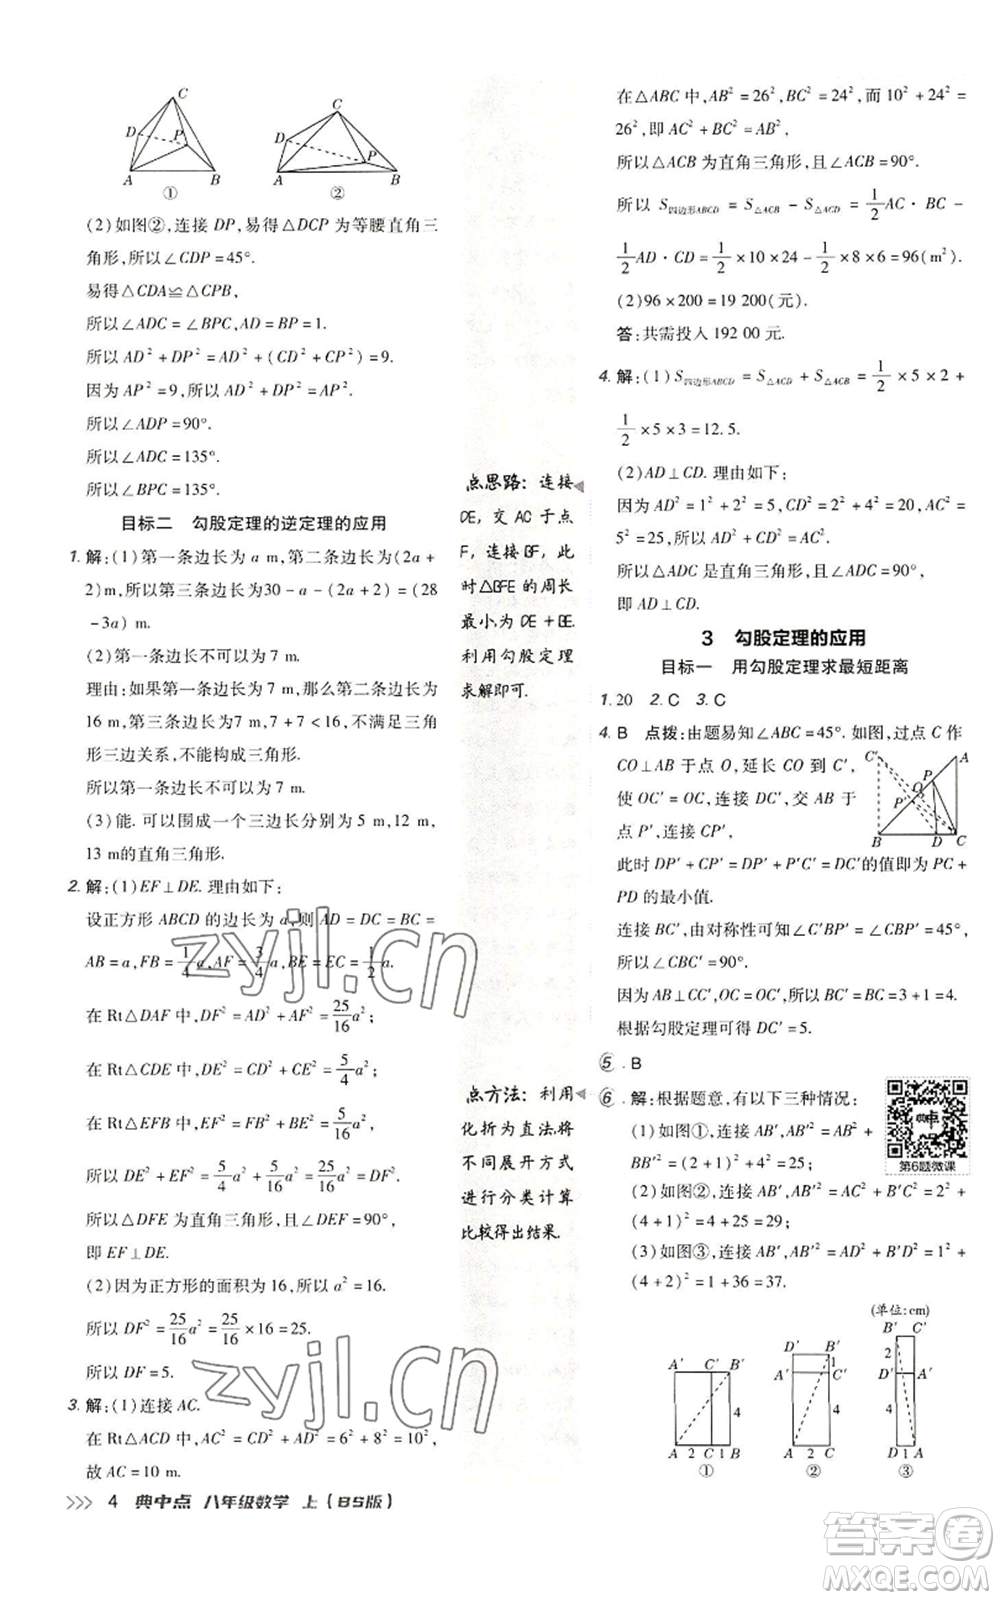 C
D
P
A
B
①
C
D
P
A
B
②
(2)如图②,连接 DP,易得△DCP 为等腰直角三
角形,所以∠CDP=45°.
易得△CDA≌△CPB,
所以∠ADC=∠BPC,AD=BP=1.
所以 AD²+DP²=AD²+(CD²+CP²)=9.
因为 AP²=9,所以 AD²+DP²=AP².
所以∠ADP=90°.
所以∠ADC=135°.
所以∠BPC=135°.
目标二 勾股定理的逆定理的应用
1. 解:(1)第一条边长为 a m,第二条边长为(2a+
2)m,所以第三条边长为30-a-(2a+2)=(28
-3a) m.
(2)第一条边长不可以为 7 m.
理由:如果第一条边长为 7 m,那么第二条边长为
16 m,第三条边长为 7 m,7+7<16,不满足三角
形三边关系,不能构成三角形.
所以第一条边长不可以为 7 m.
(3)能. 可以围成一个三边长分别为 5 m,12 m,
13 m的直角三角形.
2. 解:(1)EF⊥DE. 理由如下:
设正方形 ABCD 的边长为 a,则 AD=DC=BC=
AB=a,FB=1/4 a,AF=3/4 a,BE=EC=1/2 a.
在 Rt△DAF 中,DF²=AD²+AF²=25/16 a²;
在 Rt△CDE 中,DE²=CD²+CE²=5/4 a²;
在 Rt△EFB 中,EF²=EB²+BF²=5/16 a².
所以 DE²+EF²=5/4 a²+5/16 a²=25/16 a²=DF².
所以△DFE 为直角三角形,且∠DEF=90°,
即 EF⊥DE.
(2)因为正方形的面积为 16,所以 a²=16.
所以 DF²=25/16 a²=25/16×16=25.
所以 DF=5.
3. 解:(1)连接 AC.
在 Rt△ACD 中,AC²=CD²+AD²=6²+8²=10²,
故 AC=10 m.
4 典中点 八年级数学 上(BS版)
点思路:连接
DE,交 AC 于点
F,连接 BF,此
时△BFE 的周长
最小,为 DE+BE.
利用勾股定理
求解即可.
点方法:利用
化折为直法,将
不同展开方式
进行分类计算
比较得出结果.
在△ABC 中,AB²=26²,BC²=24²,而 10²+24²=
26²,即 AC²+BC²=AB²,
所以△ACB 为直角三角形,且∠ACB=90°.
所以 S四边形ABCD=S△ACB-S△ACD=1/2 AC·BC-
1/2 AD·CD=1/2×10×24-1/2×8×6=96(m²).
(2)96×200=19 200(元).
答:共需投入 192 00 元.
4. 解:(1)S四边形ABCD=S△ACD+S△ACB=1/2×5×2+
1/2×5×3=12.5.
(2)AD⊥CD. 理由如下:
因为 AD²=1²+2²=5,CD²=2²+4²=20,AC²=
5²=25,所以 AD²+CD²=AC².
所以△ADC 是直角三角形,且∠ADC=90°,
即 AD⊥CD.
3 勾股定理的应用
目标一 用勾股定理求最短距离
1. 20 2. C 3. C
4. B 点拨:由题易知∠ABC=45°. 如图,过点 C 作
CO⊥AB 于点 O,延长 CO 到 C′,
使 OC′=OC,连接 DC′,交 AB 于
点 P′,连接 CP′,
C′
A
P
O
P′
B
D
C
此时 DP′+CP′=DP′+P′C′=DC′的值即为 PC+
PD 的最小值.
连接 BC′,由对称性可知∠C′BP′=∠CBP′=45°,
所以∠CBC′=90°.
因为 AB⊥CC′,OC=OC′,所以 BC′=BC=3+1=4.
根据勾股定理可得 DC′=5.
5. B
6. 解:根据题意,有以下三种情况:
(1)如图①,连接 AB′,AB′²=AB²+
BB′²=(2+1)²+4²=25;
第6题微课
(2)如图②,连接 AB′,AB′²=AC²+B′C²=2²+
(4+1)²=4+25=29;
(3)如图③,连接 AB′,AB′²=AD²+B′D²=1²+
(4+2)²=1+36=37.
(单位:cm)
A′
C′
B′
4
A
2
C
1
B
①
D′
B′
1
A′
C′
4
A
2
C
②
B′
C′
2
A′
4
D
1
A
③
zyjl.cn
zyjl.cn
答案圈
MXQE.COM